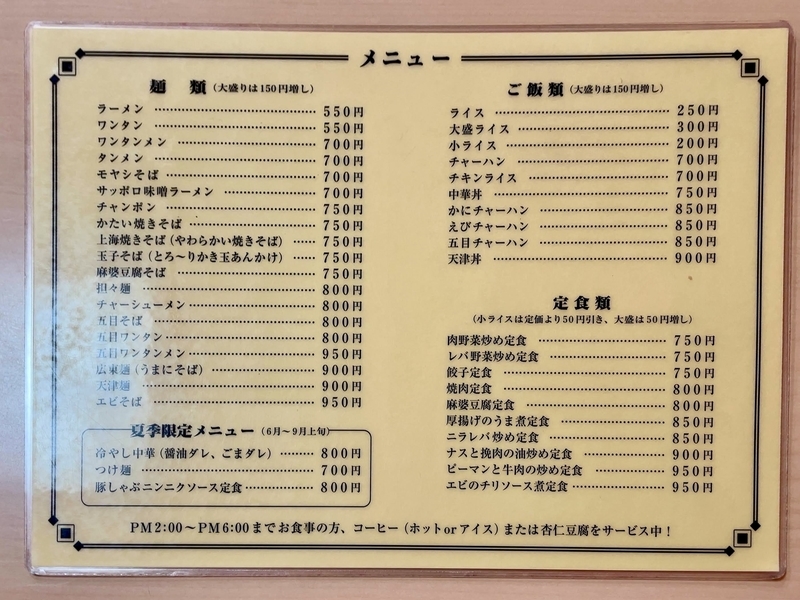 メニュー
麺 類(大盛りは150円増し)
ラーメン 550円
ワンタン 550円
ワンタンメン 700円
タンメン 700円
モヤシそば 700円
サッポロ味噌ラーメン 700円
チャンポン 750円
かたい焼きそば 750円
上海焼きそば(やわらかい焼きそば) 750円
玉子そば(とろ~りかき玉あんかけ) 750円
麻婆豆腐そば 750円
担々麺 800円
チャーシューメン 800円
五目そば 800円
五目ワンタン 800円
五目ワンタンメン 950円
広東麺(うまにそば) 900円
天津麺 900円
エビそば 950円
夏季限定メニュー(6月~9月上旬)
冷やし中華(醤油ダレ、ごまダレ) 800円
つけ麺 700円
豚しゃぶニンニクソース定食 800円
ご飯類(大盛りは150円増し)
ライス 250円
大盛ライス 300円
小ライス 200円
チャーハン 700円
チキンライス 700円
中華丼 750円
かにチャーハン 850円
えびチャーハン 850円
五目チャーハン 850円
天津丼 900円
定食類
(小ライスは定価より50円引き、大盛は50円増し)
肉野菜炒め定食 750円
レバ野菜炒め定食 750円
餃子定食 750円
焼肉定食 800円
麻婆豆腐定食 800円
厚揚げのうま煮定食 850円
ニラレバ炒め定食 850円
ナスと挽肉の油炒め定食 900円
ピーマンと牛肉の炒め定食 950円
エビのチリソース煮定食 950円
PM2:00~PM6:00までお食事の方、コーヒー(ホットorアイス)または杏仁豆腐をサービス中!